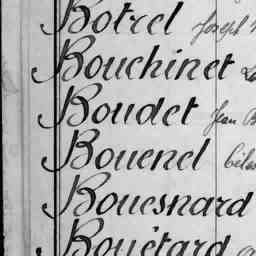 Botrel Joseph
Bouchinet
Boudet Jean
Bouenel
Bouesnard
Bouétard